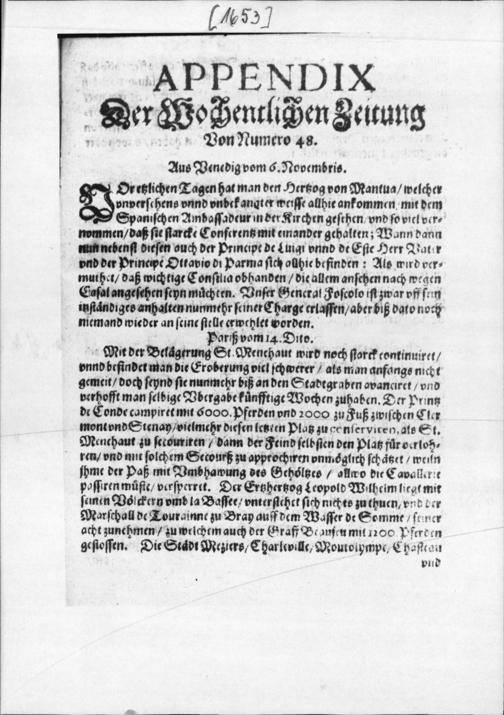 [1653]
APPENDIX
Der Wochentlichen Zeitung
Von Numero 48.
Aus Venedig vom 6. Novembris.
VOr etlichen Tagen hat man den Hertzog von Mantua / welcher
unversehens unnd unbekangter weisse allhie ankommen / mit dem
Spanischen Ambassadeur in der Kirchen gesehen / und so viel ver-
nommen / daß sie starcke Conferentz mit einander gehalten; Wann dann
nun nebenst diesen auch der Principe de Luigi unnd de Este Herr Vater
und der Principe Ottavio di Parma sich allhie befinden: Als wird ver-
muthet / daß wichtige Consilia obhanden / die allem ansehen nach wegen
Casal angesehen seyn müchten. Unser General Foscolo ist zwar uff sein
inständiges anhalten nunmehr seiner Charge erlassen / aber biß dato noch
niemand wieder an seine stelle erwehlet worden.
Pariß vom 14. Dito.
Mit der Belägerung St. Menehaut wird noch starck continuiret /
unnd befindet man die Eroberung viel schwerer / als man anfangs nicht
gemeit / doch seynd sie nunmehr biß an den Stadtgraben avanciret / und
verhofft man selbige Ubergabe künfftige Wochen zuhaben. Der Printz
de Conde campiret mit 6000. Pferden und 2000 zu Fuß zwischen Cler
mont und Stenay / vielmehr diesen letzten Platz zu conserviren, als St.
Menehaut zu secouriren / dann der Feind selbsten den Platz für verloh-
ren / und mit solchem Secourß zu approchiren unmöglich schätzet / weiln
ihme der Paß mit Umbhawung des Gehöltzes / allwo die Cavallerie
passiren müste / versperret. Der Ertzhertzog Leopold Wilhelm liegt mit
seinen Völckern umb la Bassee / unterstehet sich nichts zu thuen / und der
Marschall de Tourainne zu Bray auff dem Wasser de Somme / seiner
acht zunehmen / zu welchem auch der Graff mit 1200 Pferden
gestossen. Die Städt Meziers / Charleville / Montolympe, Chasteau
und